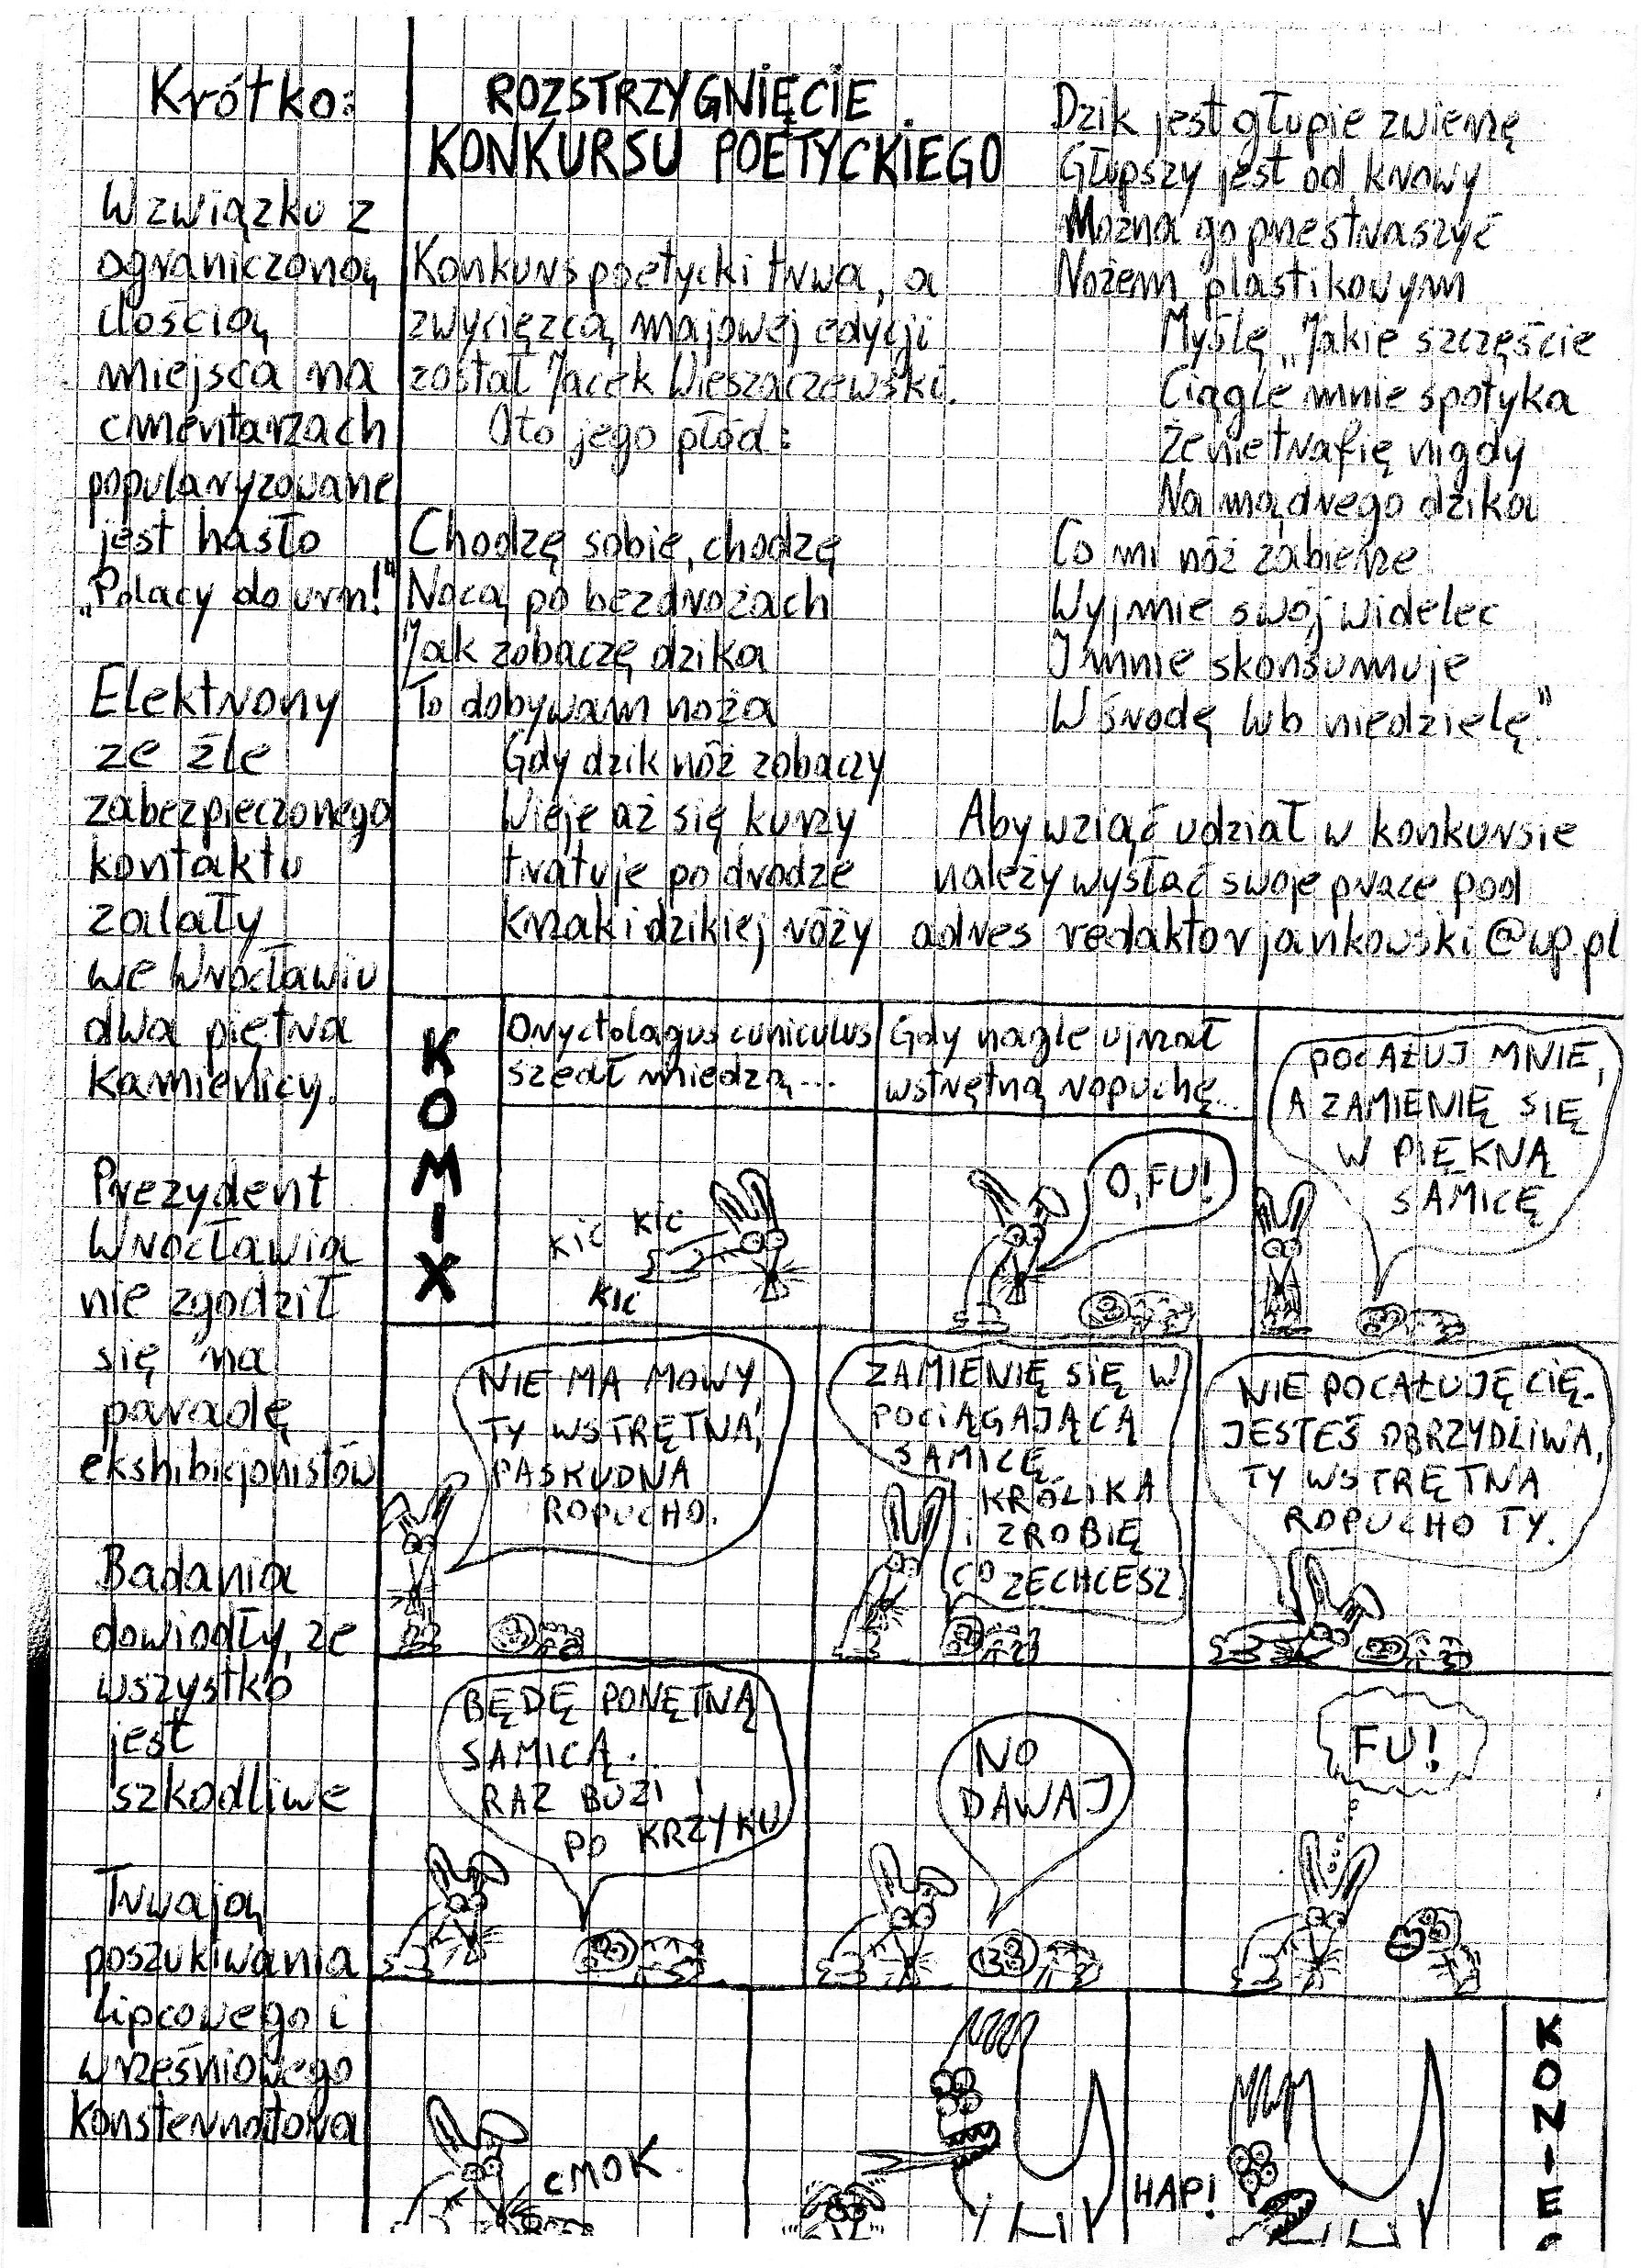 Krótko:
W związku z
ograniczoną
ilością
miejsca na
cmentarzach
popularyzowane
jest hasło
„Polacy do urn!"
Elektrony
ze źle
zabezpieczonego
kontaktu
zalały
we Wrocławiu
dwa piętra
kamienicy.
Prezydent
Wrocławia
nie zgodził
się na
paradę
ekshibicjonistów
Badania
dowiodły, że
wszystko
jest
szkodliwe
Trwają
poszukiwania
lipcowego i
wrześniowego
Konsternatora
ROZSTRZYGNIĘCIE
KONKURSU POETYCKIEGO
Konkurs poetycki trwa, a
zwycięzcą majowej edycji
został Jacek Wieszaczewski.
Oto jego płód:
Chodzę sobie, chodzę
Nocą po bezdrożach
Jak zobaczę dzika
To dobywam noża
Gdy dzik nóż zobaczy
Wieje aż się kurzy
tratuje po drodze
Krzaki dzikiej róży
Dzik jest głupie zwierzę
Głupszy jest od krowy
Można go przestraszyć
Nożem plastikowym
Myślę „Jakie szczęście
Ciągle mnie spotyka
Że nie trafię nigdy
Na mądrego dzika
Co mi nóż zabierze
Wyjmie swój widelec
I mnie skonsumuje
W środę lub niedzielę."
Aby wziąć udział w konkursie
należy wysłać swoje prace pod
adres redaktorjankowski@wp.pl
KOMIX
Oryctolagus cuniculus
szedł miedzą...
KIC KIC
KIC
Gdy nagle ujrzał
wstrętną ropuchę...
O, FU!
POCAŁUJ MNIE,
A ZAMIENIĘ SIĘ
W PIĘKNĄ
SAMICĘ
NIE MA MOWY,
TY WSTRĘTNA,
PASKUDNA
ROPUCHO.
ZAMIENIĘ SIĘ W
POCIĄGAJĄCĄ
SAMICĘ
KRÓLIKA
I ZROBIĘ
CO ZECHCESZ
NIE POCAŁUJĘ CIĘ.
JESTEŚ OBRZYDLIWA,
TY WSTRĘTNA
ROPUCHO TY.
BĘDĘ PONĘTNĄ
SAMICĄ.
RAZ BUZI I
PO KRZYKU
NO
DAWAJ
FU!
CMOK
HAP!
KONIEC